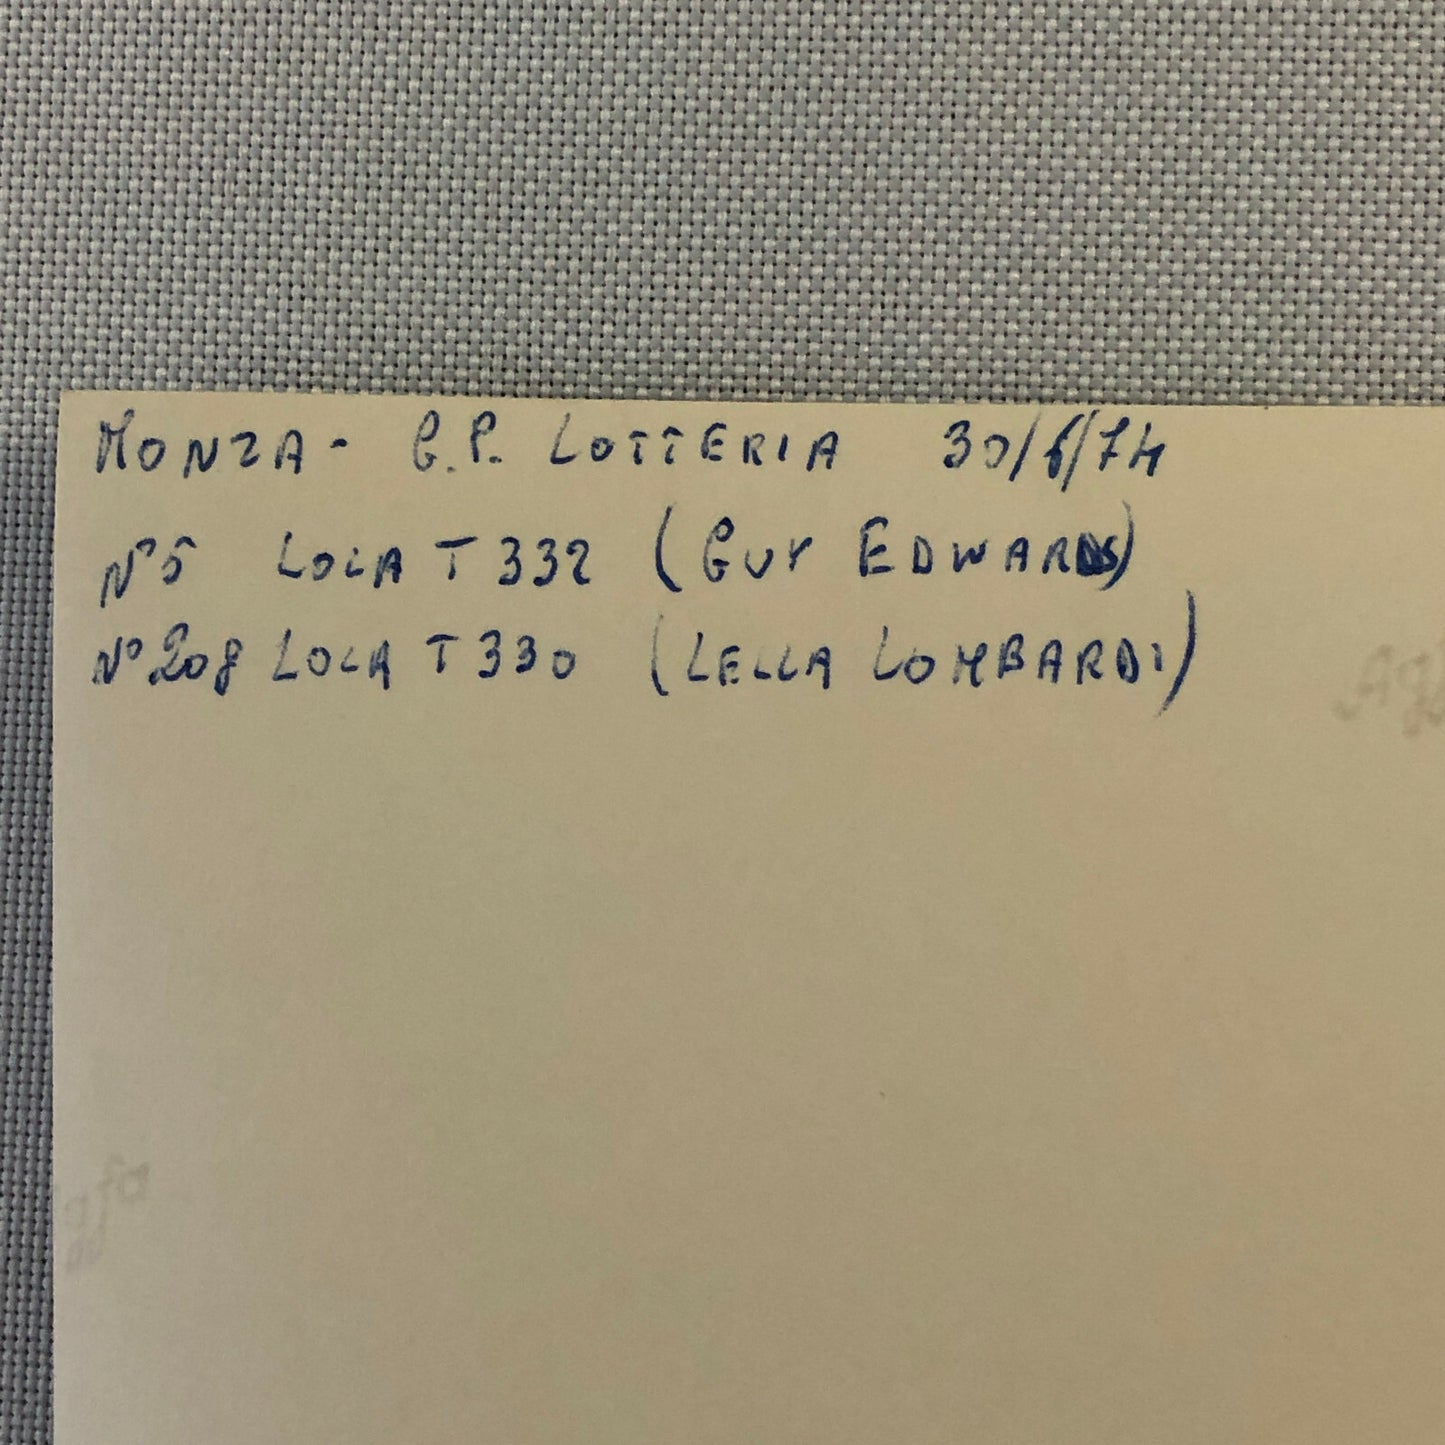 MONZA - G.P. LOTTERIA 30/6/74
N° 5 LOLA T 332 (GUY EDWARDS)
N° 208 LOLA T 330 (LELLA LOMBARDI)